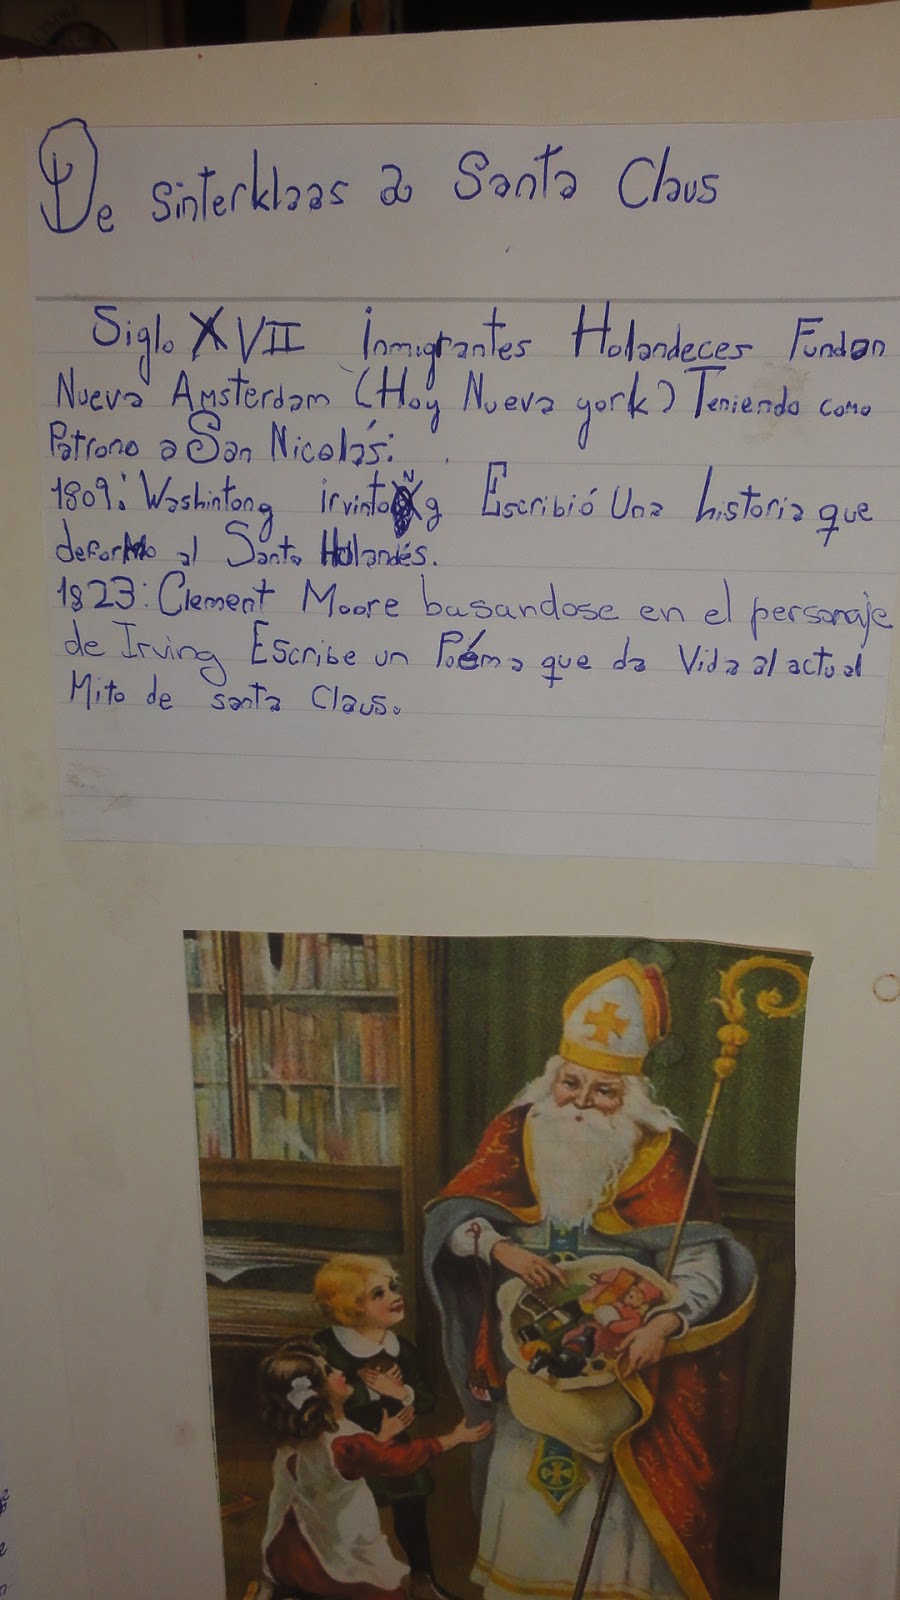 De sinterklaas a Santa Claus
Siglo XVII Inmigrantes Holandeces Fundan
Nueva Amsterdam (Hoy Nueva york) Teniendo como
Patrono a San Nicolás:
1809: Washintong Escribió Una historia que
deformo al Santo Holandés.
1823: Clement Moore basandose en el personaje
de Irving Escribe un Poéma que da Vida al actual
Mito de santa Claus.